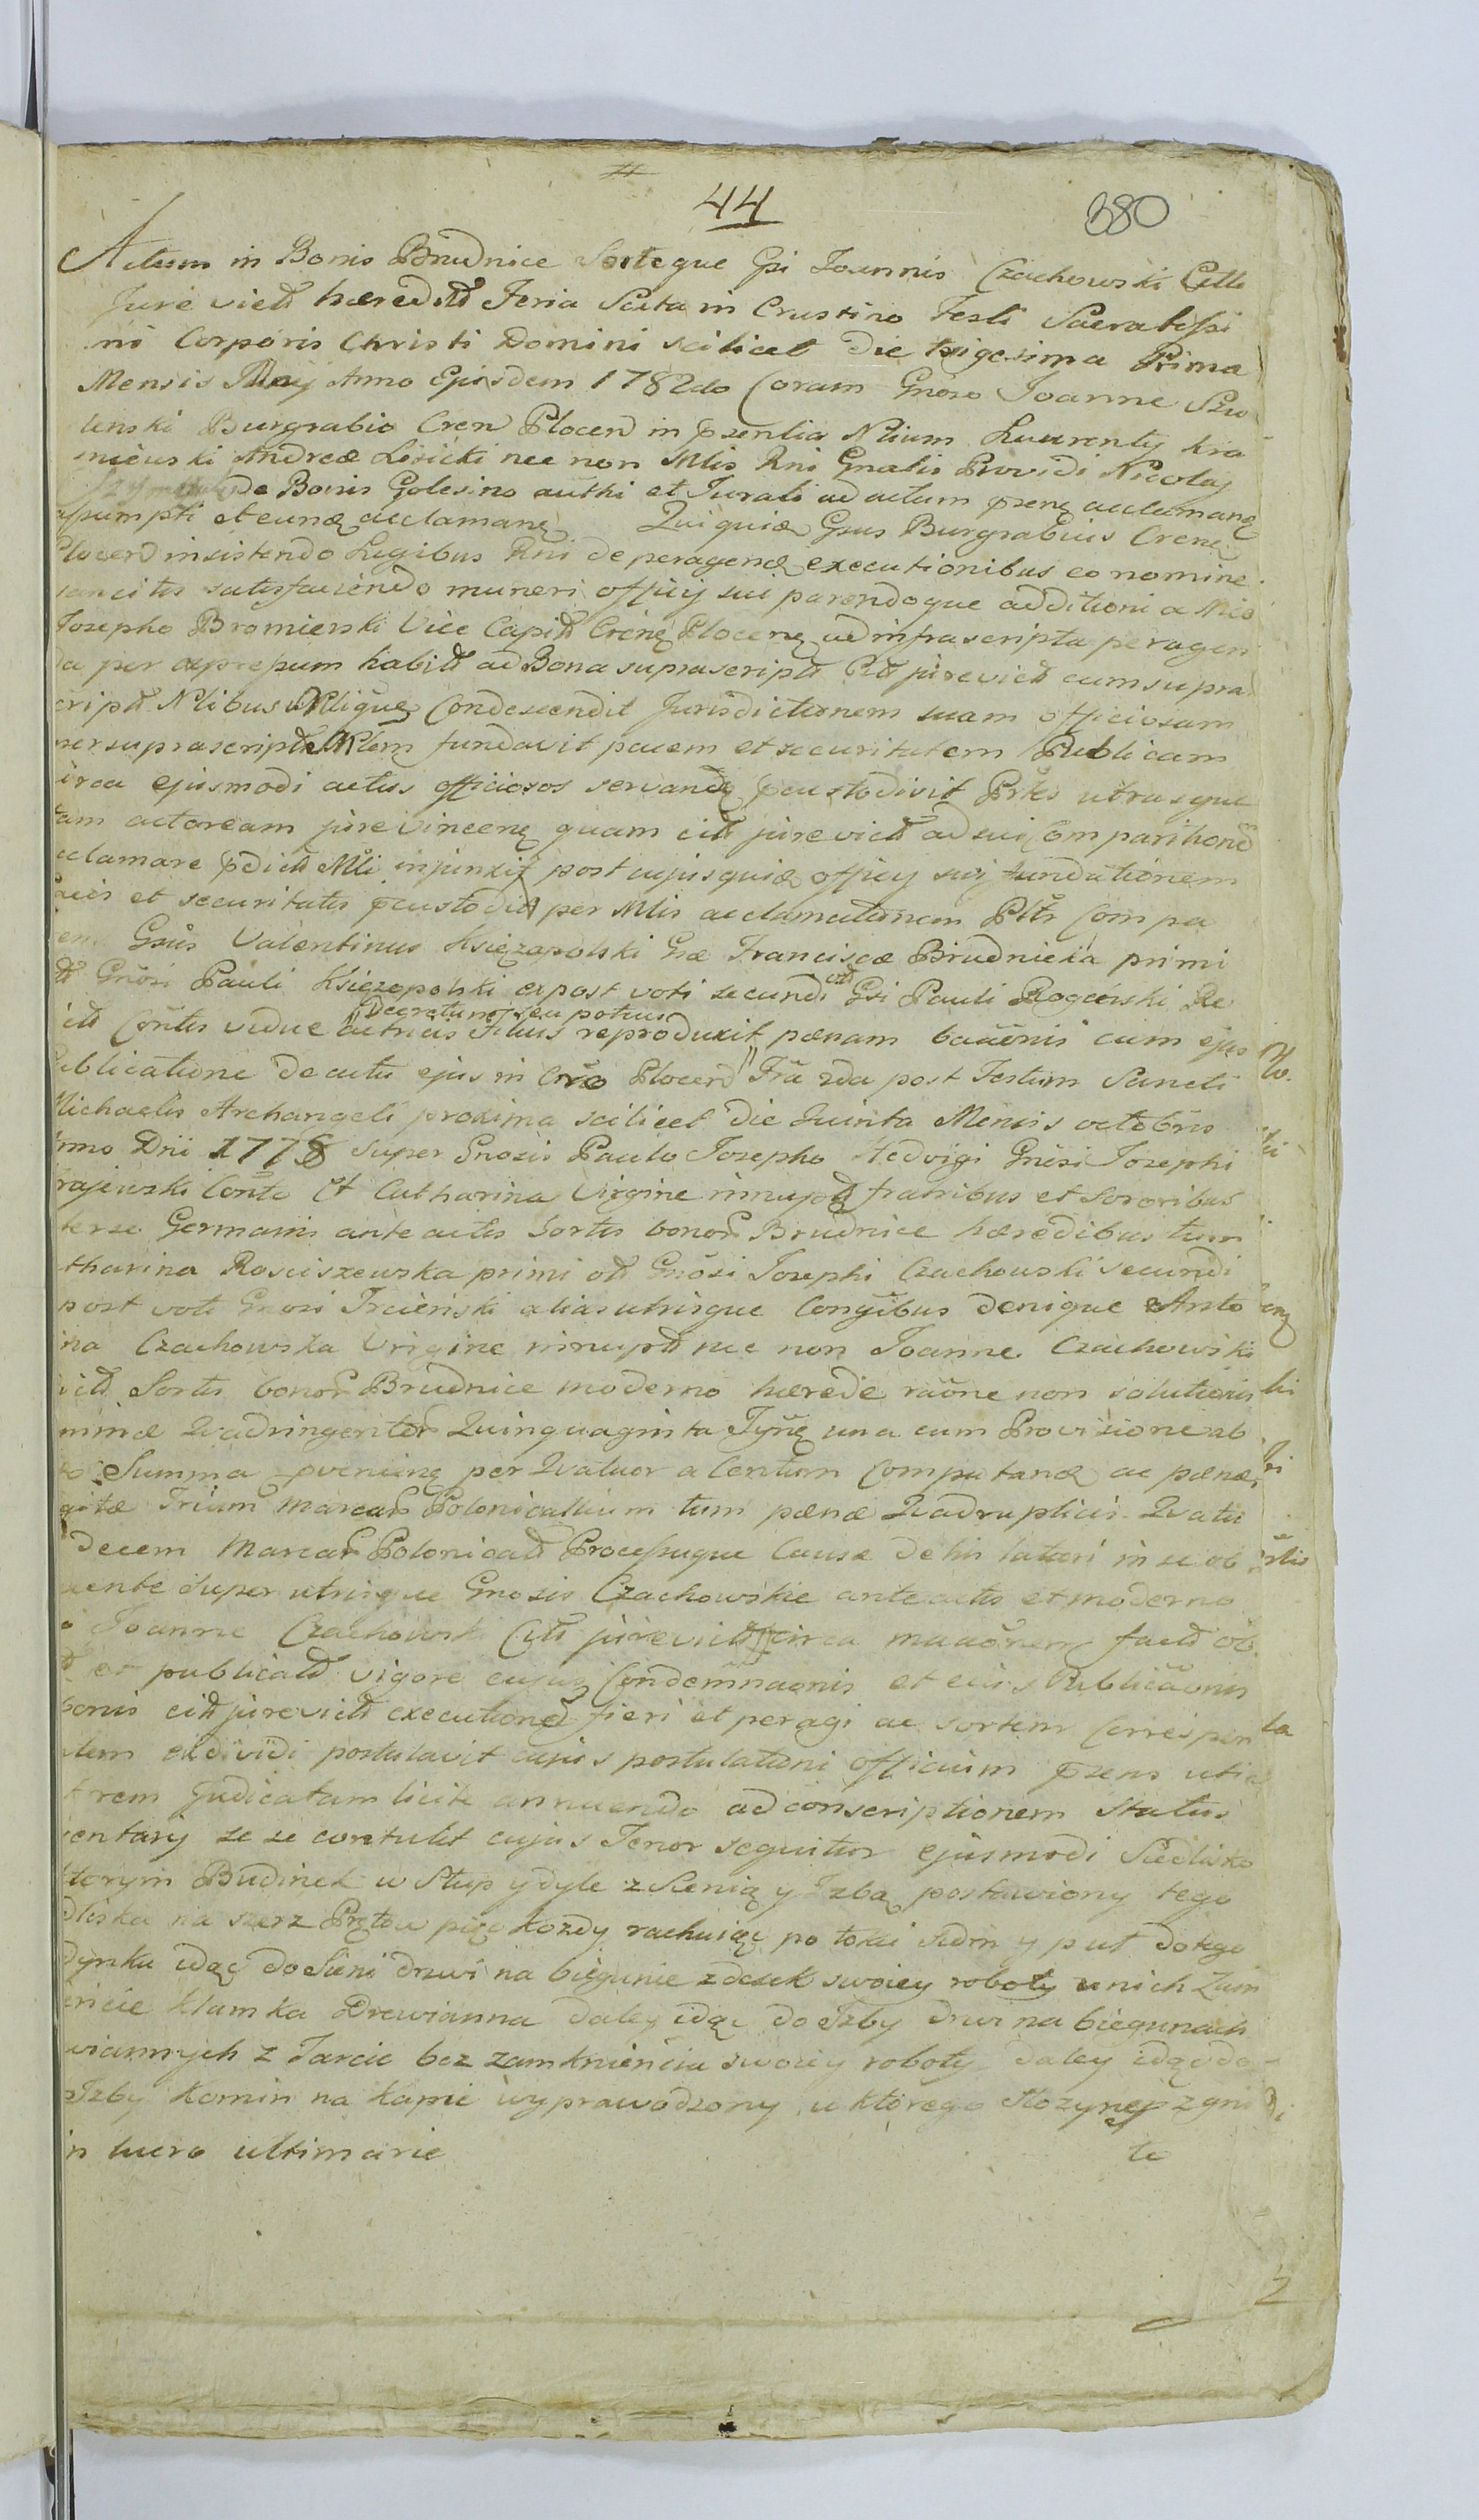 44
380
Actum in Bonis Brudnice Sorteque Gsi Joannis Czachowski Citti
Jure victi hæredtt Feria Sexta in Crastino Festi Sacratissi
mi Corporis Christi Domini scilicet die trigesima Prima
Mensis May Anno Ejusdem 1782do Coram Gnoso Joanne Szu
lenski Burgrabio Cren Plocen in pzentia Nlium Laurenty Kra
niewski Andreæ Lisicki nec non Mlis Rni Gnalis Providi Nicolaj
de Bonis Golesino authi et Jurati ad actum pzene acclamane
assumpti et eune acclamane Qui quidæ Gsus Burgrabius Crene
Plocen insistendo Legibus Rni de peragene executionibus eo nomine
sancitis satisfaciendo muneri officij sui parendoque additioni a Mco
Josepho Bromierski Vice Capitt Crene Plocene ad infrascripta peragen
da per expressum habitt ad Bona suprascriptt Citt jurevictt cum supra
scriptt Nlibus Mlique Condescendit Jurisdictionem suam officiosam
per suprascriptt Mlem fundavit pacem et securitatem Publicam
circa ejusmodi actus officiosos servande pcustodivit Prtes utrasque
tam actoream jurevincene quam citt jurevictt ad sui Comparitione
acclamare pdictt Mli injunxit post cujusquidæ officij sui fundationem
pacis et securitatis pcustoditt per Mlis acclamationem Pltr Compa
ren Gsus Valentinus Księzopolski Gæ Franciscæ Brudnicka primi
ott Gnosi Pauli Księzopolski ex post voti secundi ott Gsi Pauli Rogoński Re
lictt Contis viduæ actricis Filius reproduxit pænam banonis cum ejus
Decretum seu potius
Publicatione de actu ejus in Cro Plocen Fra 2da post Festum Sancti
Michaelis Archangeli proxima scilicet die Quinta Mensis octobris
Anno Dni 1778 super Gnosis Paulo Josepho Hedvigi Gnosi Josephi
Krajewski Conte et Catharina Virgine innuptt fratribus et Sororibus
inter se Germanis ante actis Sortis bonor Brudnice hæredibus tum
Catharina Rosciszewska primi ott Gnosi Josephi Czachowski secundi
post voti Gnosi Trcieński alias utrisque Congibus denique Anto
nina Czachowska Virgine innuptt nec non Joanne Czachowski
citt Sortis bonor Brudnice moderno hærede raone non solutionis
minæ Quadringentor Quinquaginta Tyne una cum Provisione ab
Summa pvenieng per Quatuor a Centum Computanæ ac pænæ
Trium Marcar Polonicallium tum pænæ Quadruplicis Quatu
decem Marcar Polonicatt Processuque Causæ de his latiori in se ob
nente super utrisque Gnosis Czachowskie anteactis et moderno
Joanne Czachowski Citt jurevictt circa manonem factt ob
et publicatt vigore cujus Condemnaonis et ejus Publicaonis
bonis citt jurevictt executione fieri et peragi ac Sortem Correspon
dtem exdividi postulavit cujus postulationi officium pzens uti
rem Judicatam licite annuendo ad conscriptionem Status
Inventary se se contulit cujus Tenor sequitur ejusmodi Siedlisko
w ktorym Budinek w Słup y dyle z Sienią y Izbą postawiony tego
Siedliska na szerz Prętow pięc kozdy rachuiąc po łokci siedm y puł do tego
Budynku idąc do Sieni drzwi na biegunie z desek swoiey roboty u nich Zam
knięcie klamka drewianna daley idąc do Izby drzwi na biegunach
drewiannych z Tarcic bez zamknienia swoiey roboty daley idąc do
Izby Komin na kapie wyprawodzony u ktorego
in lucro ultimarie
te